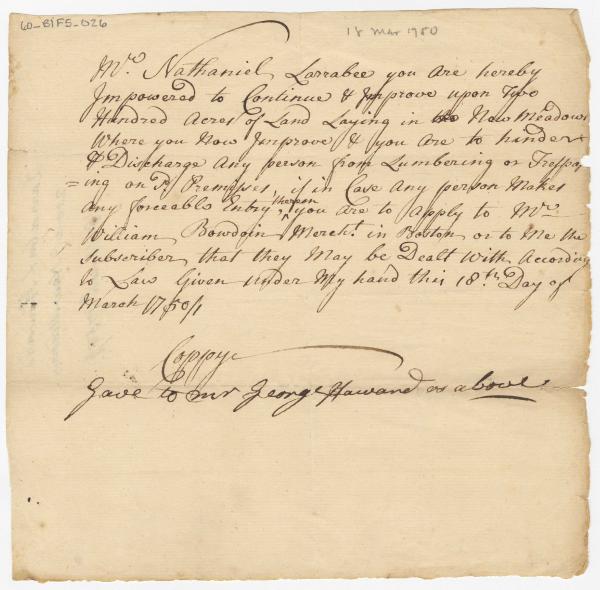 60-BIFS-026
18 Mar 1750
Mr. Nathaniel Larrabee you Are hereby
Impowered to Continue & Improve upon Two
Hundred Acres of Land Laying in New Meadows
Where you Now Improve & you Are to hinder
& Discharge Any person from Lumbering or Trespas
=ing on ye. Premisses, if in Case Any person Makes
any forceable Entry thereon you are to Apply to Mr.
William Bowdoin Mercht. in Boston or to Me the
Subscriber that they May be Dealt with According
to Law Given under My hand this 18th. Day of
March 1750/1
Coppye
Gave to mr George Haward as above